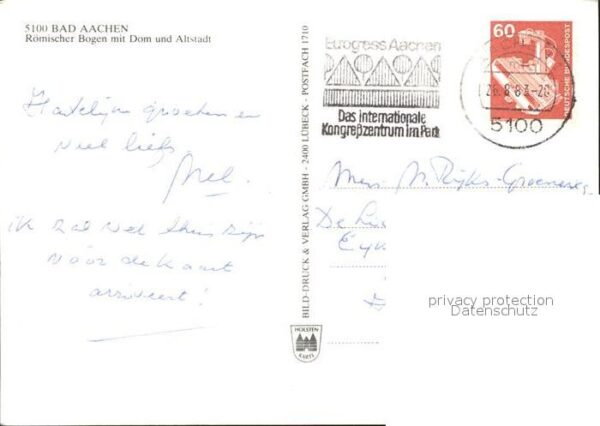 5100 BAD AACHEN
Römischer Bogen mit Dom und Altstadt
Hartelijke groeten en
veel liefs
Nel.
ik zal wel thuis zijn
vóór de kaart
arriveert!
BILD-DRUCK & VERLAG GMBH - 2400 LÜBECK - POSTFACH 1710
HOLSTEN
KARTE
Eurogress Aachen
Das internationale
Kongreßzentrum im Park
60
DEUTSCHE BUNDESPOST
26.8.83-20
5100
Mevr. N. Rijks-Groeneweg
De
privacy protection
Datenschutz